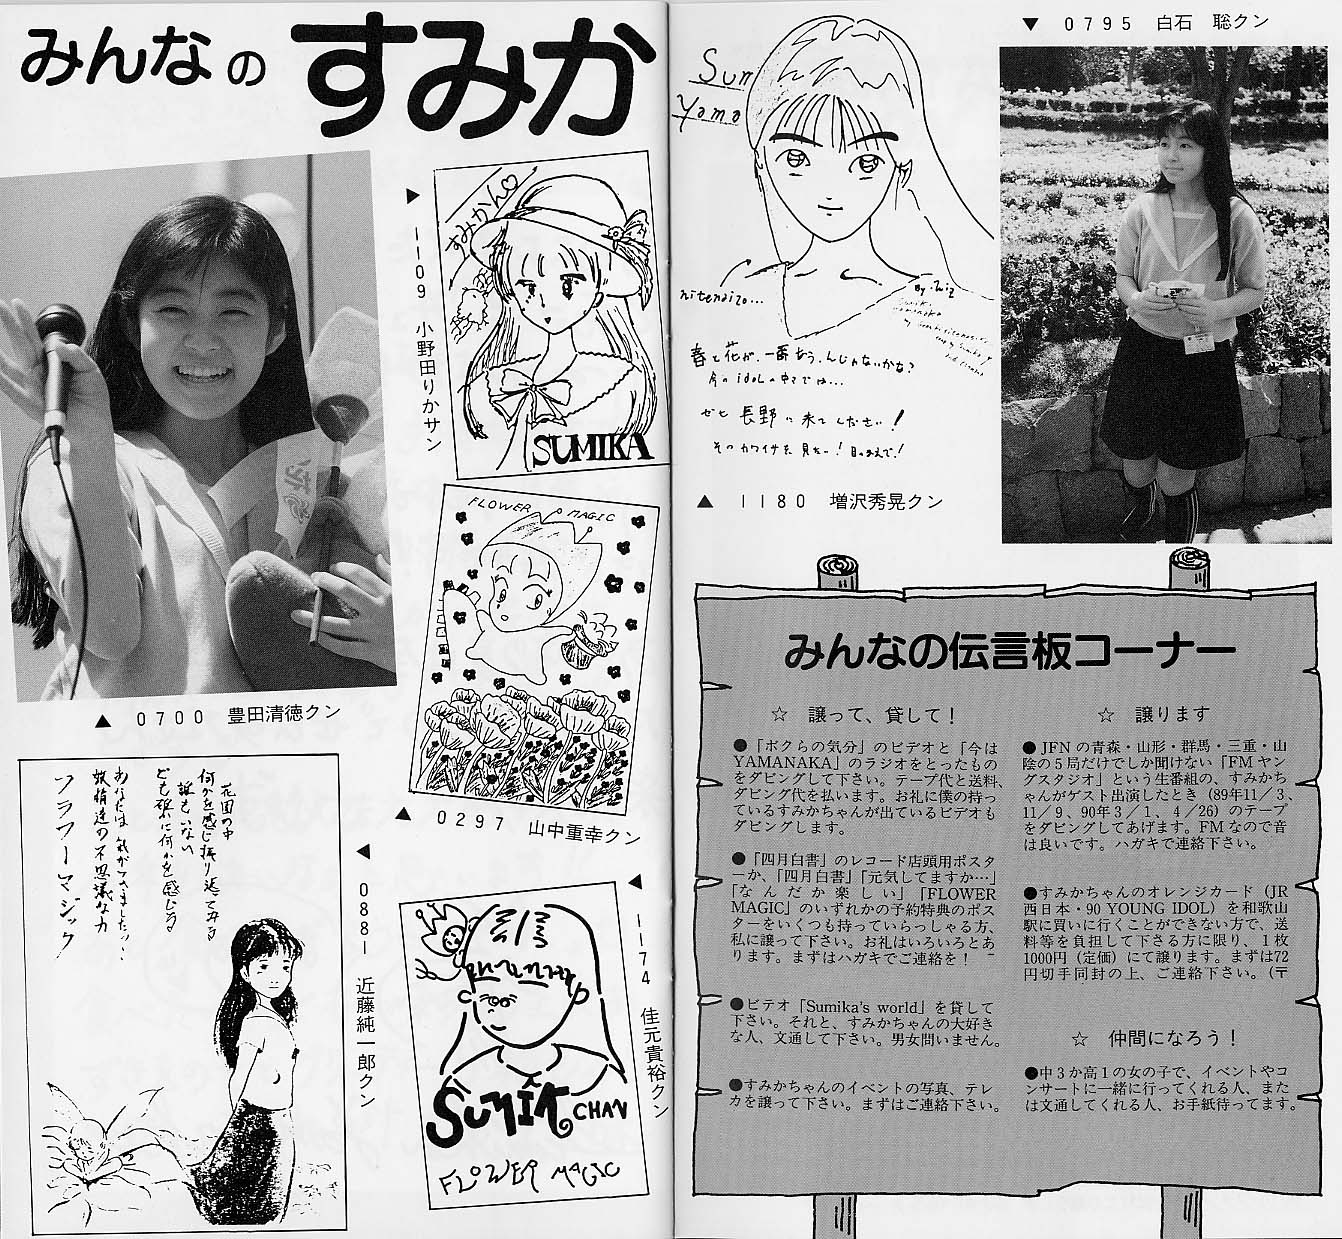 みんなのすみか
▲ 0700 豊田清徳クン
▶ 1109 小野田りかサン
すみかん♡
SUMIKA
FLOWER MAGIC
▲ 0297 山中重幸クン
花園の中
何かを感じ振り返てみる
誰もいない
でも確に何かを感じる
あなたは気がつきましたか…
妖精達の不思議な力
フラワーマジック
◀ 0881 近藤純一郎クン
◀ 1174 佳元貴裕クン
SUMIKA CHAN
FLOWER MAGIC
Sum
Yama
nitenaizo…
春と花が、一番なう、んじゃないかな?
今の idol の中では…
ぜひ 長野に来てください!
そのカワイサを見たい!目のまえで!
▲ 1180 増沢秀晃クン
▼ 0795 白石 聡クン
みんなの伝言板コーナー
☆ 譲って、貸して!
●「ボクらの気分」のビデオと「今は
YAMANAKA」のラジオをとったもの
をダビングして下さい。テープ代と送料、
ダビング代を払います。お礼に僕の持っ
ているすみかちゃんが出ているビデオも
ダビングします。
●「四月白書」のレコード店頭用ポスタ
ーか、「四月白書」「元気してますか…」
「なんだか楽しい」「FLOWER
MAGIC」のいずれかの予約特典のポス
ターをいくつも持っていらっしゃる方、
私に譲って下さい。お礼はいろいろとあ
ります。まずはハガキでご連絡を!
●ビテオ「Sumika's world」を貸して
下さい。それと、すみかちゃんの大好き
な人、文通して下さい。男女問いません。
●すみかちゃんのイベントの写真、テレ
カを譲って下さい。まずはご連絡下さい。
☆ 譲ります
●JFNの青森・山形・群馬・三重・山
陰の5局だけでしか聞けない「FMヤン
グスタジオ」という生番組の、すみかち
ゃんがゲスト出演したとき(89年11/3、
11/9、90年3/1、4/26)のテープ
をダビングしてあげます。FMなので音
は良いです。ハガキで連絡下さい。
●すみかちゃんのオレンジカード(JR
西日本・90 YOUNG IDOL)を和歌山
駅に買いに行くことができない方で、送
料等を負担して下さる方に限り、1枚
1000円(定価)にて譲ります。まずは72
円切手同封の上、ご連絡下さい。(〒
☆ 仲間になろう!
●中3か高1の女の子で、イベントやコ
ンサートに一緒に行ってくれる人、また
は文通してくれる人、お手紙待ってます。